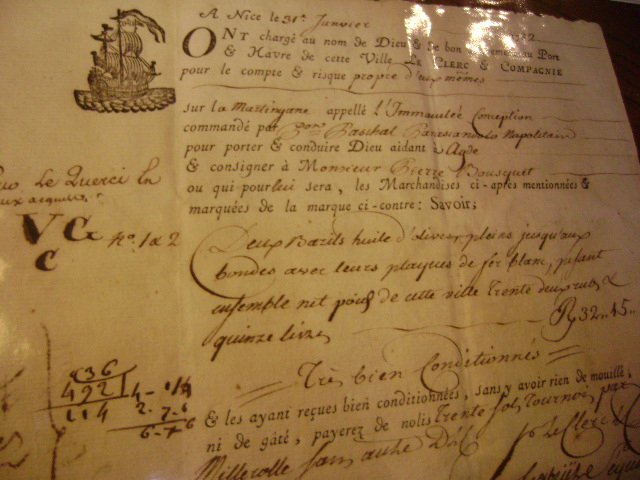 A Nice le 31e Janvier
ONT chargé au nom de Dieu & de bon au Port
& Havre de cette Ville, LE CLERC & COMPAGNIE
pour le compte & risque propre d'eux mêmes
sur la Martingane appellé L'Immaculée Conception
commandé par Pon Paschal Napolitain
pour porter & conduire Dieu aidant à Agde
& consigner à Monsieur Pierre Bousquet
ou qui pour lui sera, les Marchandises ci-après mentionnées &
marquées de la marque ci-contre: Savoir;
Le Querci
VG
C
No. 1 a 2
Deux Barils huile d'olives, pleins jusqu'aux
bondes avec leurs plaques de fer blanc, pesant
ensemble net poids de cette ville Trente deux rubs &
quinze livres
R 32.. 15..
Très bien Conditionnés
& les ayant reçues bien conditionnées, sans y avoir rien de mouillé,
ni de gâté, payerez de nolis Trente sols Tournois par
Millerolle sans autre
636
492
114